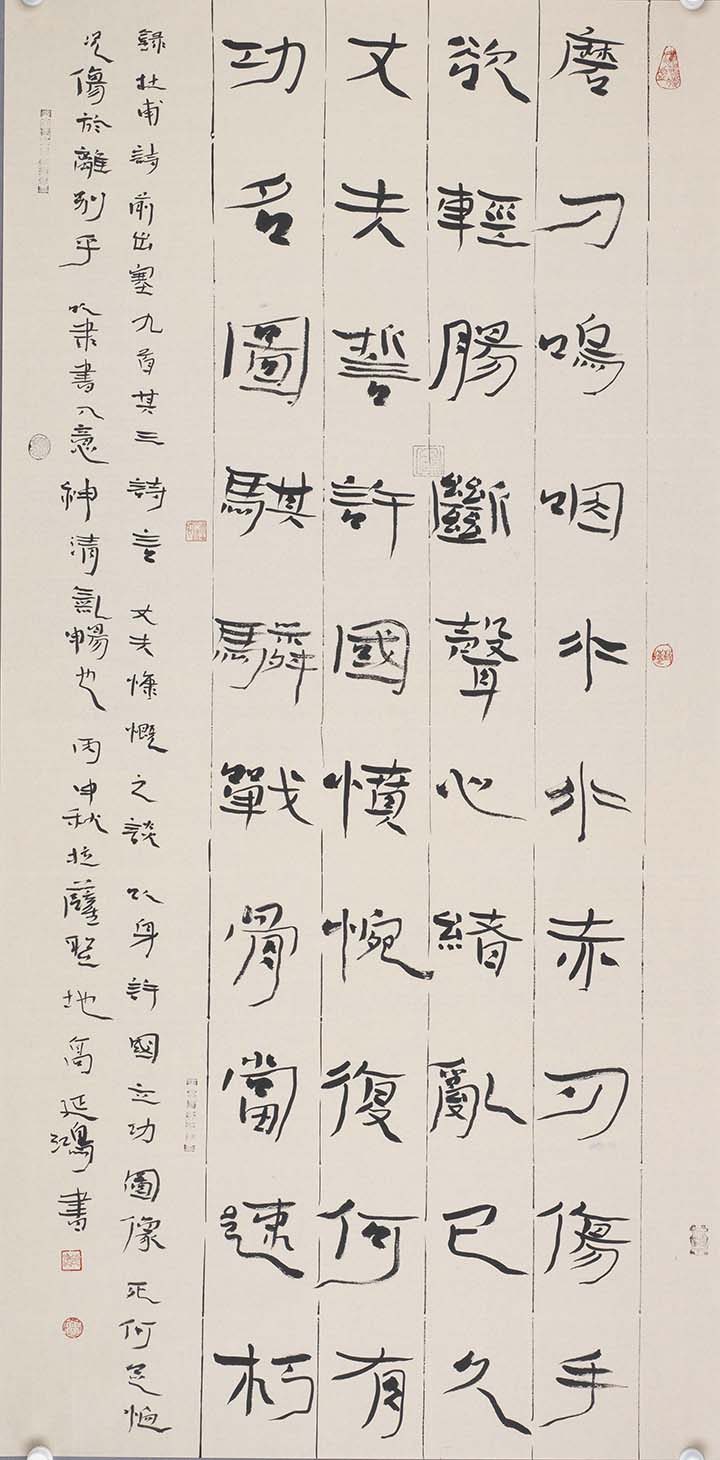 磨刀嗚咽水水赤刃傷手
欲輕腸斷聲心緒亂已久
丈夫誓許國憤惋復何有
功名圖騏驎戰骨當速朽
錄杜甫詩前出塞九首其三 詩言 丈夫慷慨之談 以身許國立功 圖像 死何足恤
況傷於離別乎 以隶書入意神清氣暢也 丙申秋拉薩聖地 高延鴻書